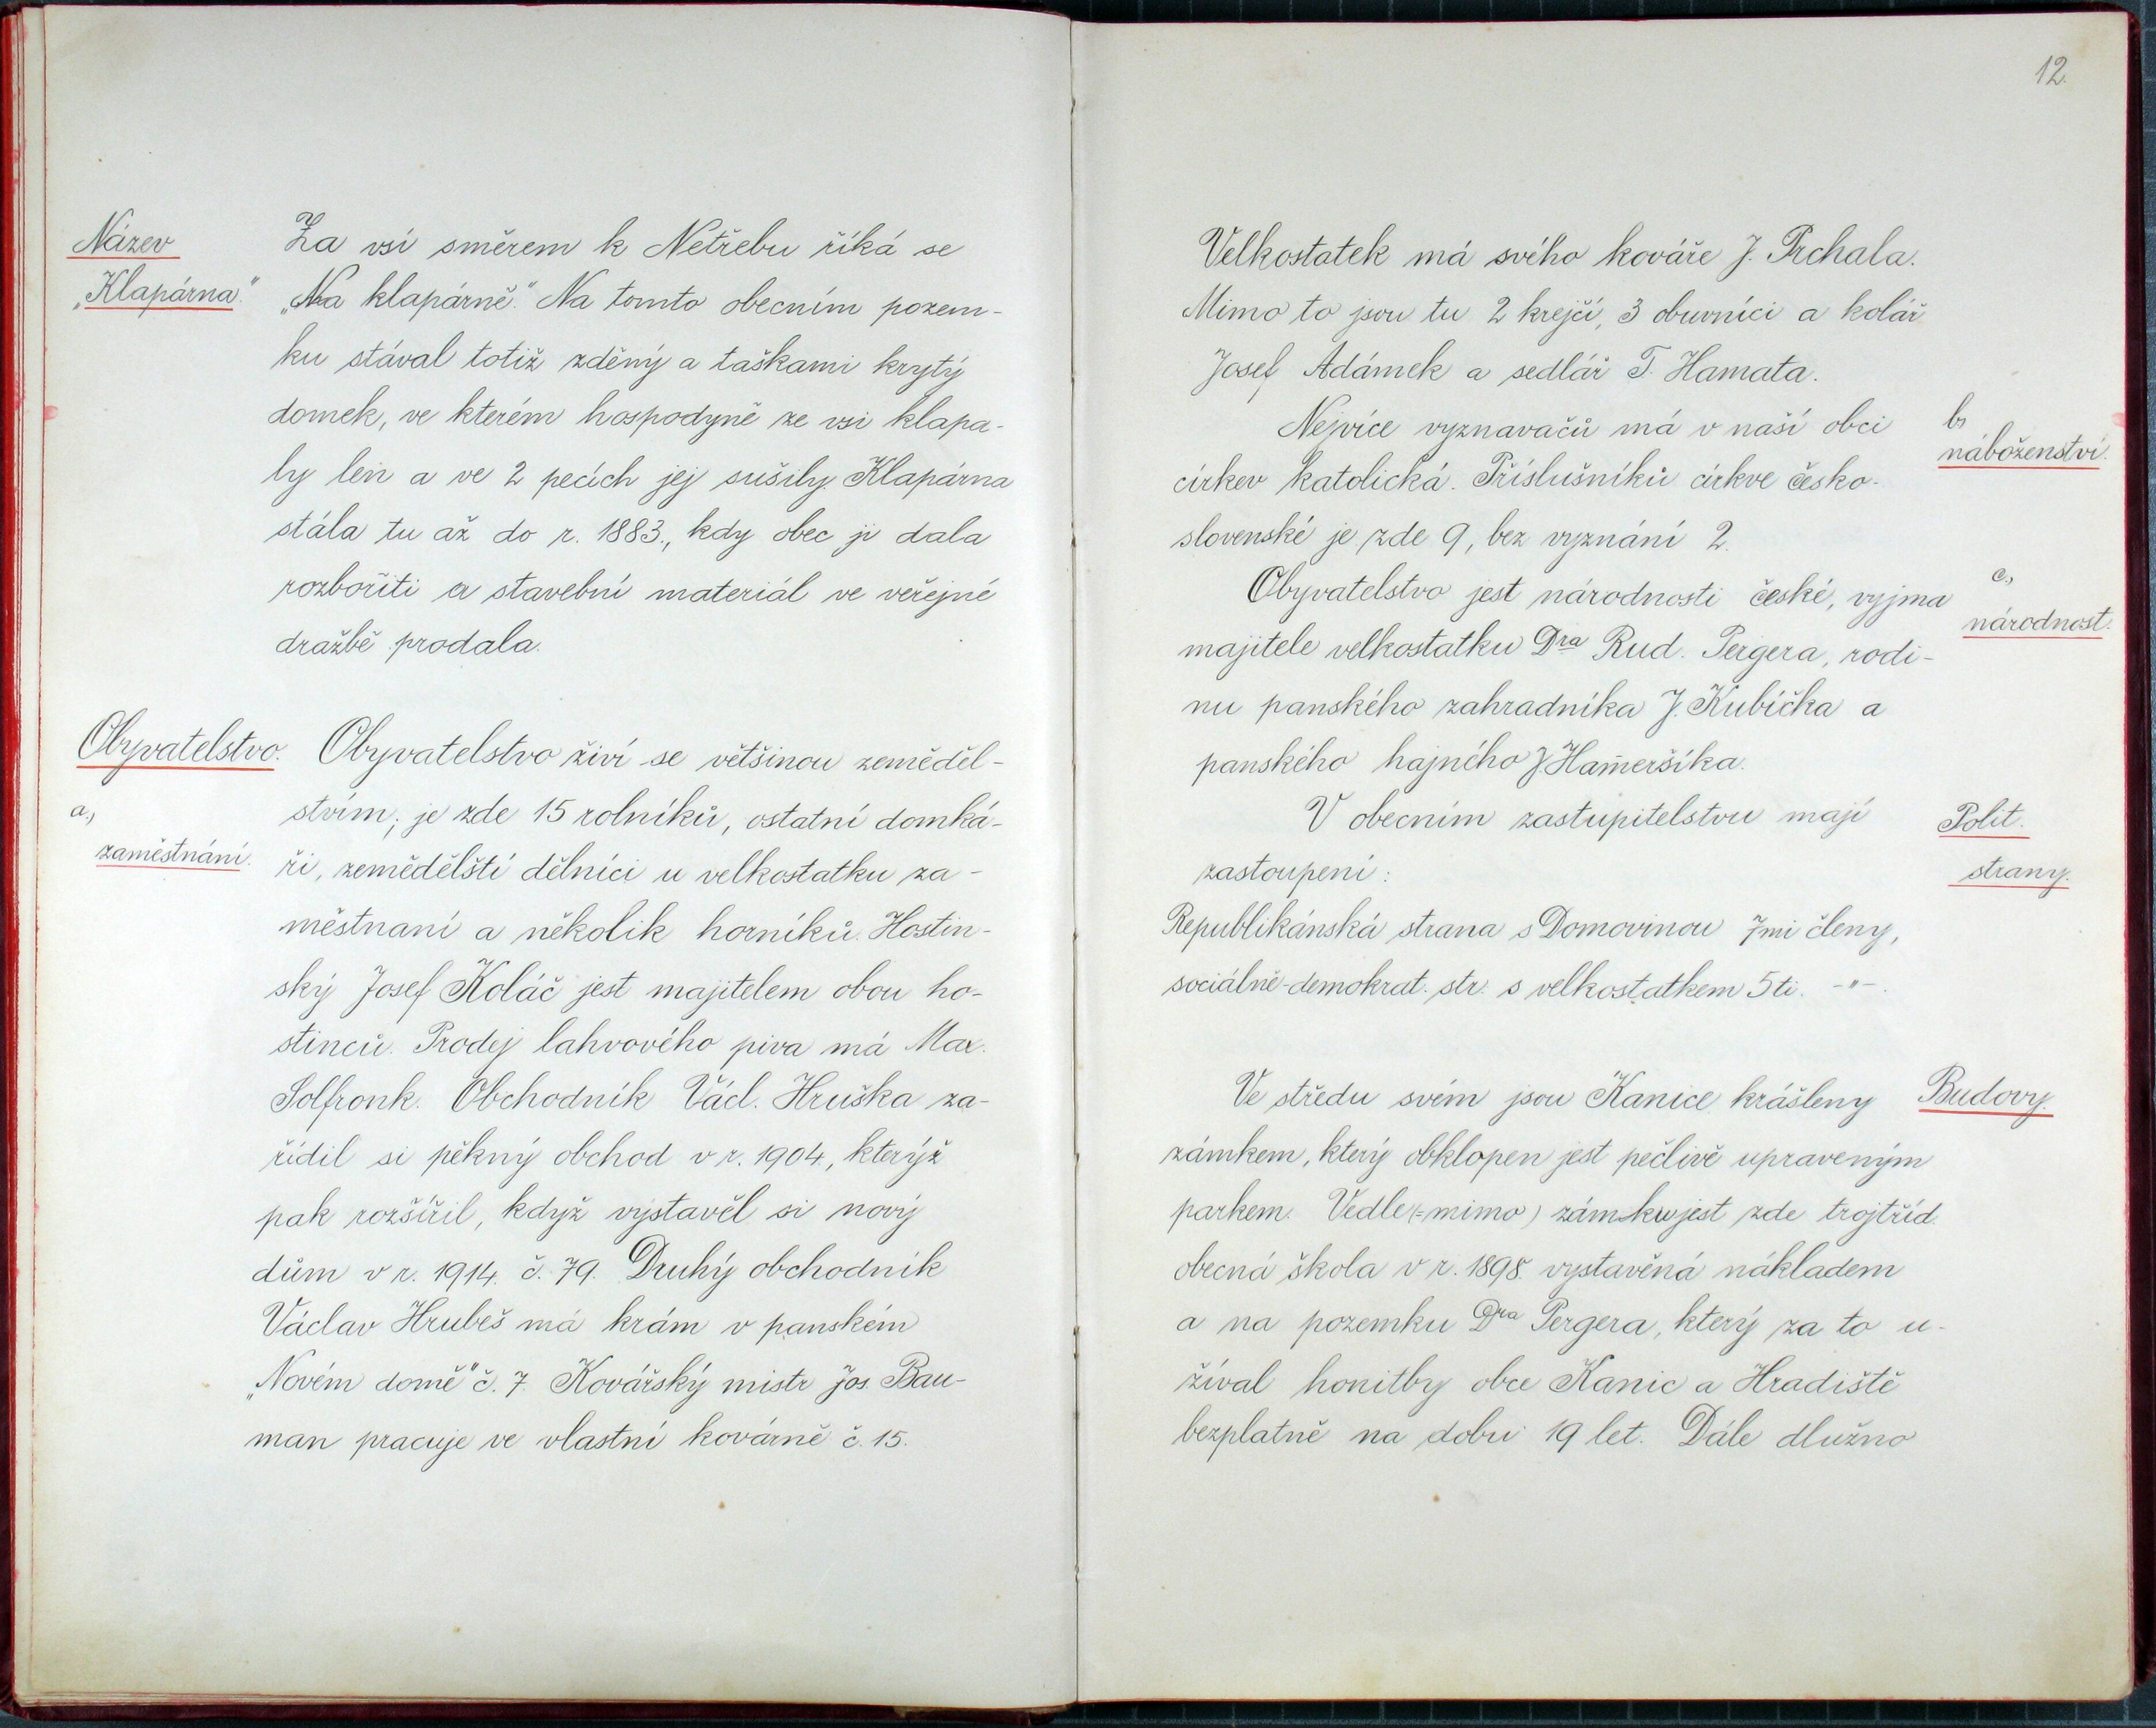 Název
„Klapárna.“
Za vsí směrem k Netřebu říká se
„Na klapárně.“ Na tomto obecním pozem-
ku stával totiž zděný a taškami krytý
domek, ve kterém hospodyně ze vsi klapa-
ly len a ve 2 pecích jej sušily. Klapárna
stála tu až do r. 1883., kdy obec ji dala
rozbořiti a stavební materiál ve veřejné
dražbě prodala.
Obyvatelstvo.
a.,
zaměstnání.
Obyvatelstvo živí se většinou zeměděl-
stvím; je zde 15 rolníků, ostatní domká-
ři, zemědělští dělníci u velkostatku za-
městnaní a několik horníků. Hostin-
ský Josef Koláč jest majitelem obou ho-
stinců. Prodej lahvového piva má Max.
Solfronk. Obchodník Václ. Hruška za-
řídil si pěkný obchod v r. 1904., kterýž
pak rozšířil, když vystavěl si nový
dům v r. 1914. č. 79. Druhý obchodník
Václav Hrubeš má krám v panském
„Novém domě“ č. 7. Kovářský mistr Jos. Bau-
man pracuje ve vlastní kovárně č. 15.
12.
Velkostatek má svého kováře J. Prchala.
Mimo to jsou tu 2 krejčí, 3 obuvníci a kolář
Josef Adámek a sedlář T. Hamata.
b,
náboženství.
Nejvíce vyznavačů má v naší obci
církev katolická. Příslušníků církve česko-
slovenské je zde 9, bez vyznání 2.
c.,
národnost.
Obyvatelstvo jest národnosti české, vyjma
majitele velkostatku Dra Rud. Pergera, rodi-
nu panského zahradníka J. Kubíčka a
panského hajného J. Ham̄eršíka.
Polit.
strany.
V obecním zastupitelstvu mají
zastoupení:
Republikánská strana s Domovinou 7mi členy,
sociálně-demokrat. str. s velkostatkem 5ti. -"-.
Budovy.
Ve středu svém jsou Kanice krášleny
zámkem, který obklopen jest pečlivě upraveným
parkem. Vedle (=mimo) zámku jest zde trojtříd.
obecná škola v r. 1898. vystavěná nákladem
a na pozemku Dra Pergera, který za to u-
žíval honitby obce Kanic a Hradiště
bezplatně na dobu 19 let. Dále dlužno